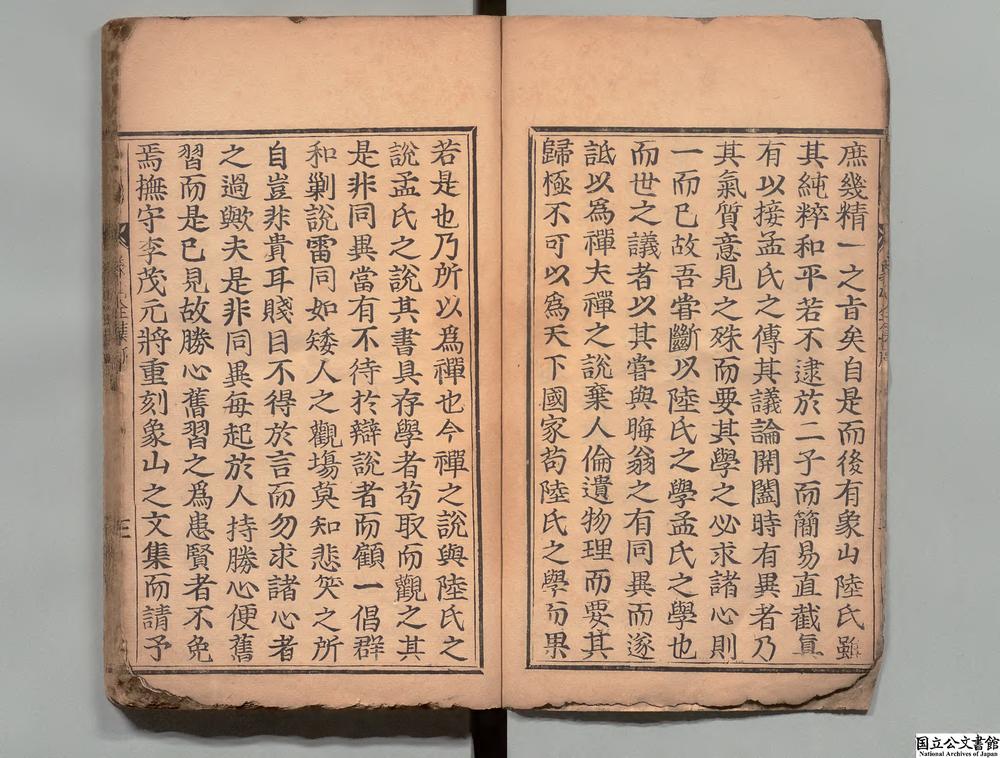 庶幾精一之旨矣自是而後有象山陸氏雖
其純粹和平若不逮於二子而簡易直截真
有以接孟氏之傳其議論開闔時有異者乃
其氣質意見之殊而要其學之必求諸心則
一而已故吾甞斷以陸氏之學孟氏之學也
而世之議者以其甞與晦翁之有同異而遂
詆以為禪夫禪之說棄人倫遺物理而要其
歸極不可以為天下國家苟陸氏之學而果
若是也乃所以爲禪也今禪之說與陸氏之
說孟氏之說其書具存學者苟取而觀之其
是非同異當有不待於辯說者而顧一倡群
和剿說雷同如矮人之觀塲莫知悲笑之所
自豈非貴耳賤目不得於言而勿求諸心者
之過歟夫是非同異每起於人持勝心便舊
習而是已見故勝心舊習之爲患賢者不免
焉撫守李茂元將重刻象山之文集而請予
国立公文書館
National Archives of Japan